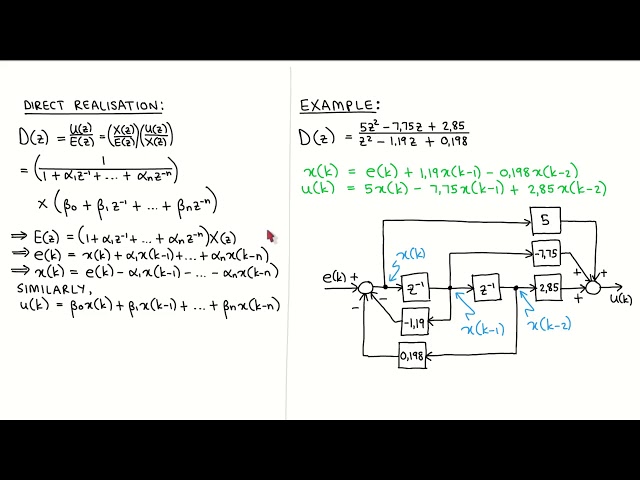 DIRECT REALISATION:
D(z) = U(z)/E(z) = (X(z)/E(z))(U(z)/X(z))
= (1/(1 + α₁z⁻¹ + ... + αₙz⁻ⁿ))
× (β₀ + β₁z⁻¹ + ... + βₙz⁻ⁿ)
⇒ E(z) = (1 + α₁z⁻¹ + ... + αₙz⁻ⁿ)X(z)
⇒ e(k) = x(k) + α₁x(k-1) + ... + αₙx(k-n)
⇒ x(k) = e(k) - α₁x(k-1) - ... - αₙx(k-n)
SIMILARLY,
u(k) = β₀x(k) + β₁x(k-1) + ... + βₙx(k-n)
EXAMPLE:
D(z) = (5z² - 7,75z + 2,85)/(z² - 1,19z + 0,198)
x(k) = e(k) + 1,19x(k-1) - 0,198x(k-2)
u(k) = 5x(k) - 7,75x(k-1) + 2,85x(k-2)
5
x(k)
-7,75
+ +
e(k) +
z⁻¹
z⁻¹
2,85
+
u(k)
- -
-1,19
x(k-1)
x(k-2)
0,198